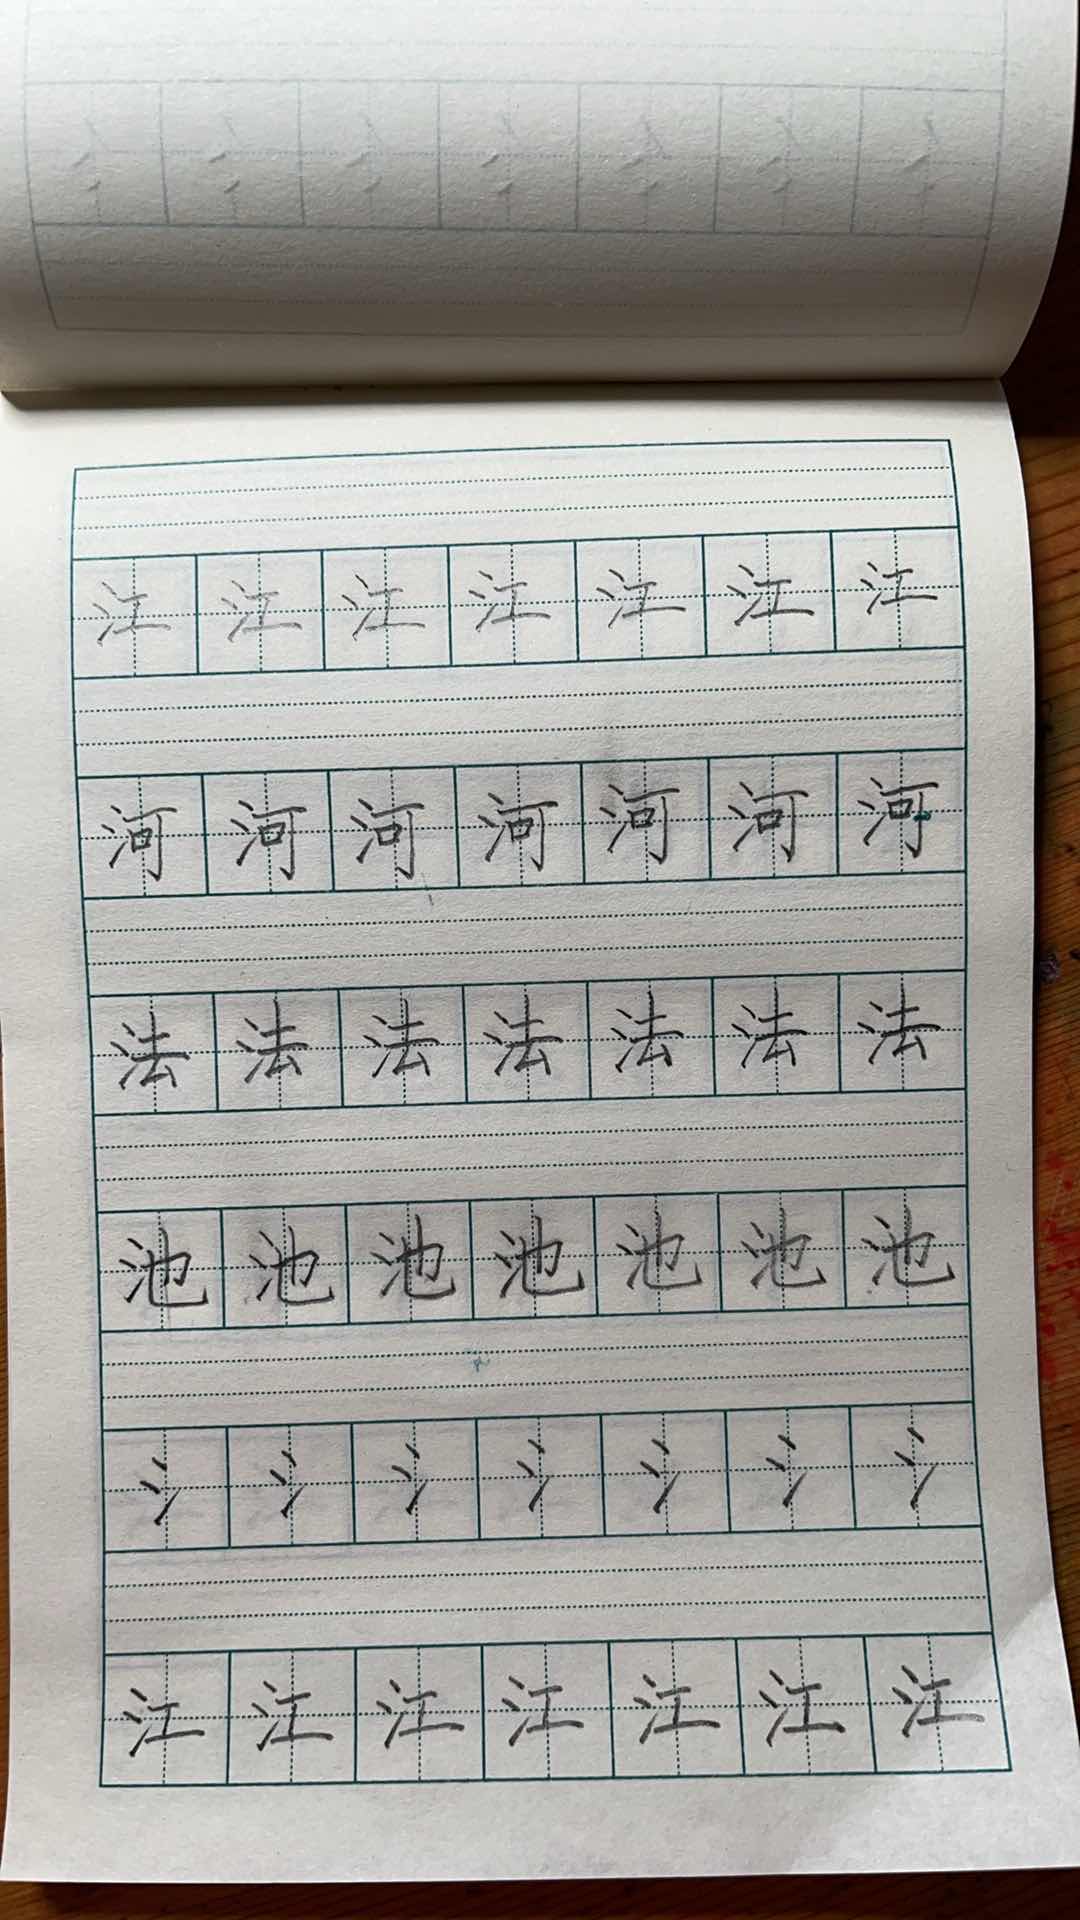 江江江江江江江
河河河河河河河
法法法法法法法
池池池池池池池
氵氵氵氵氵氵氵
江江江江江江江